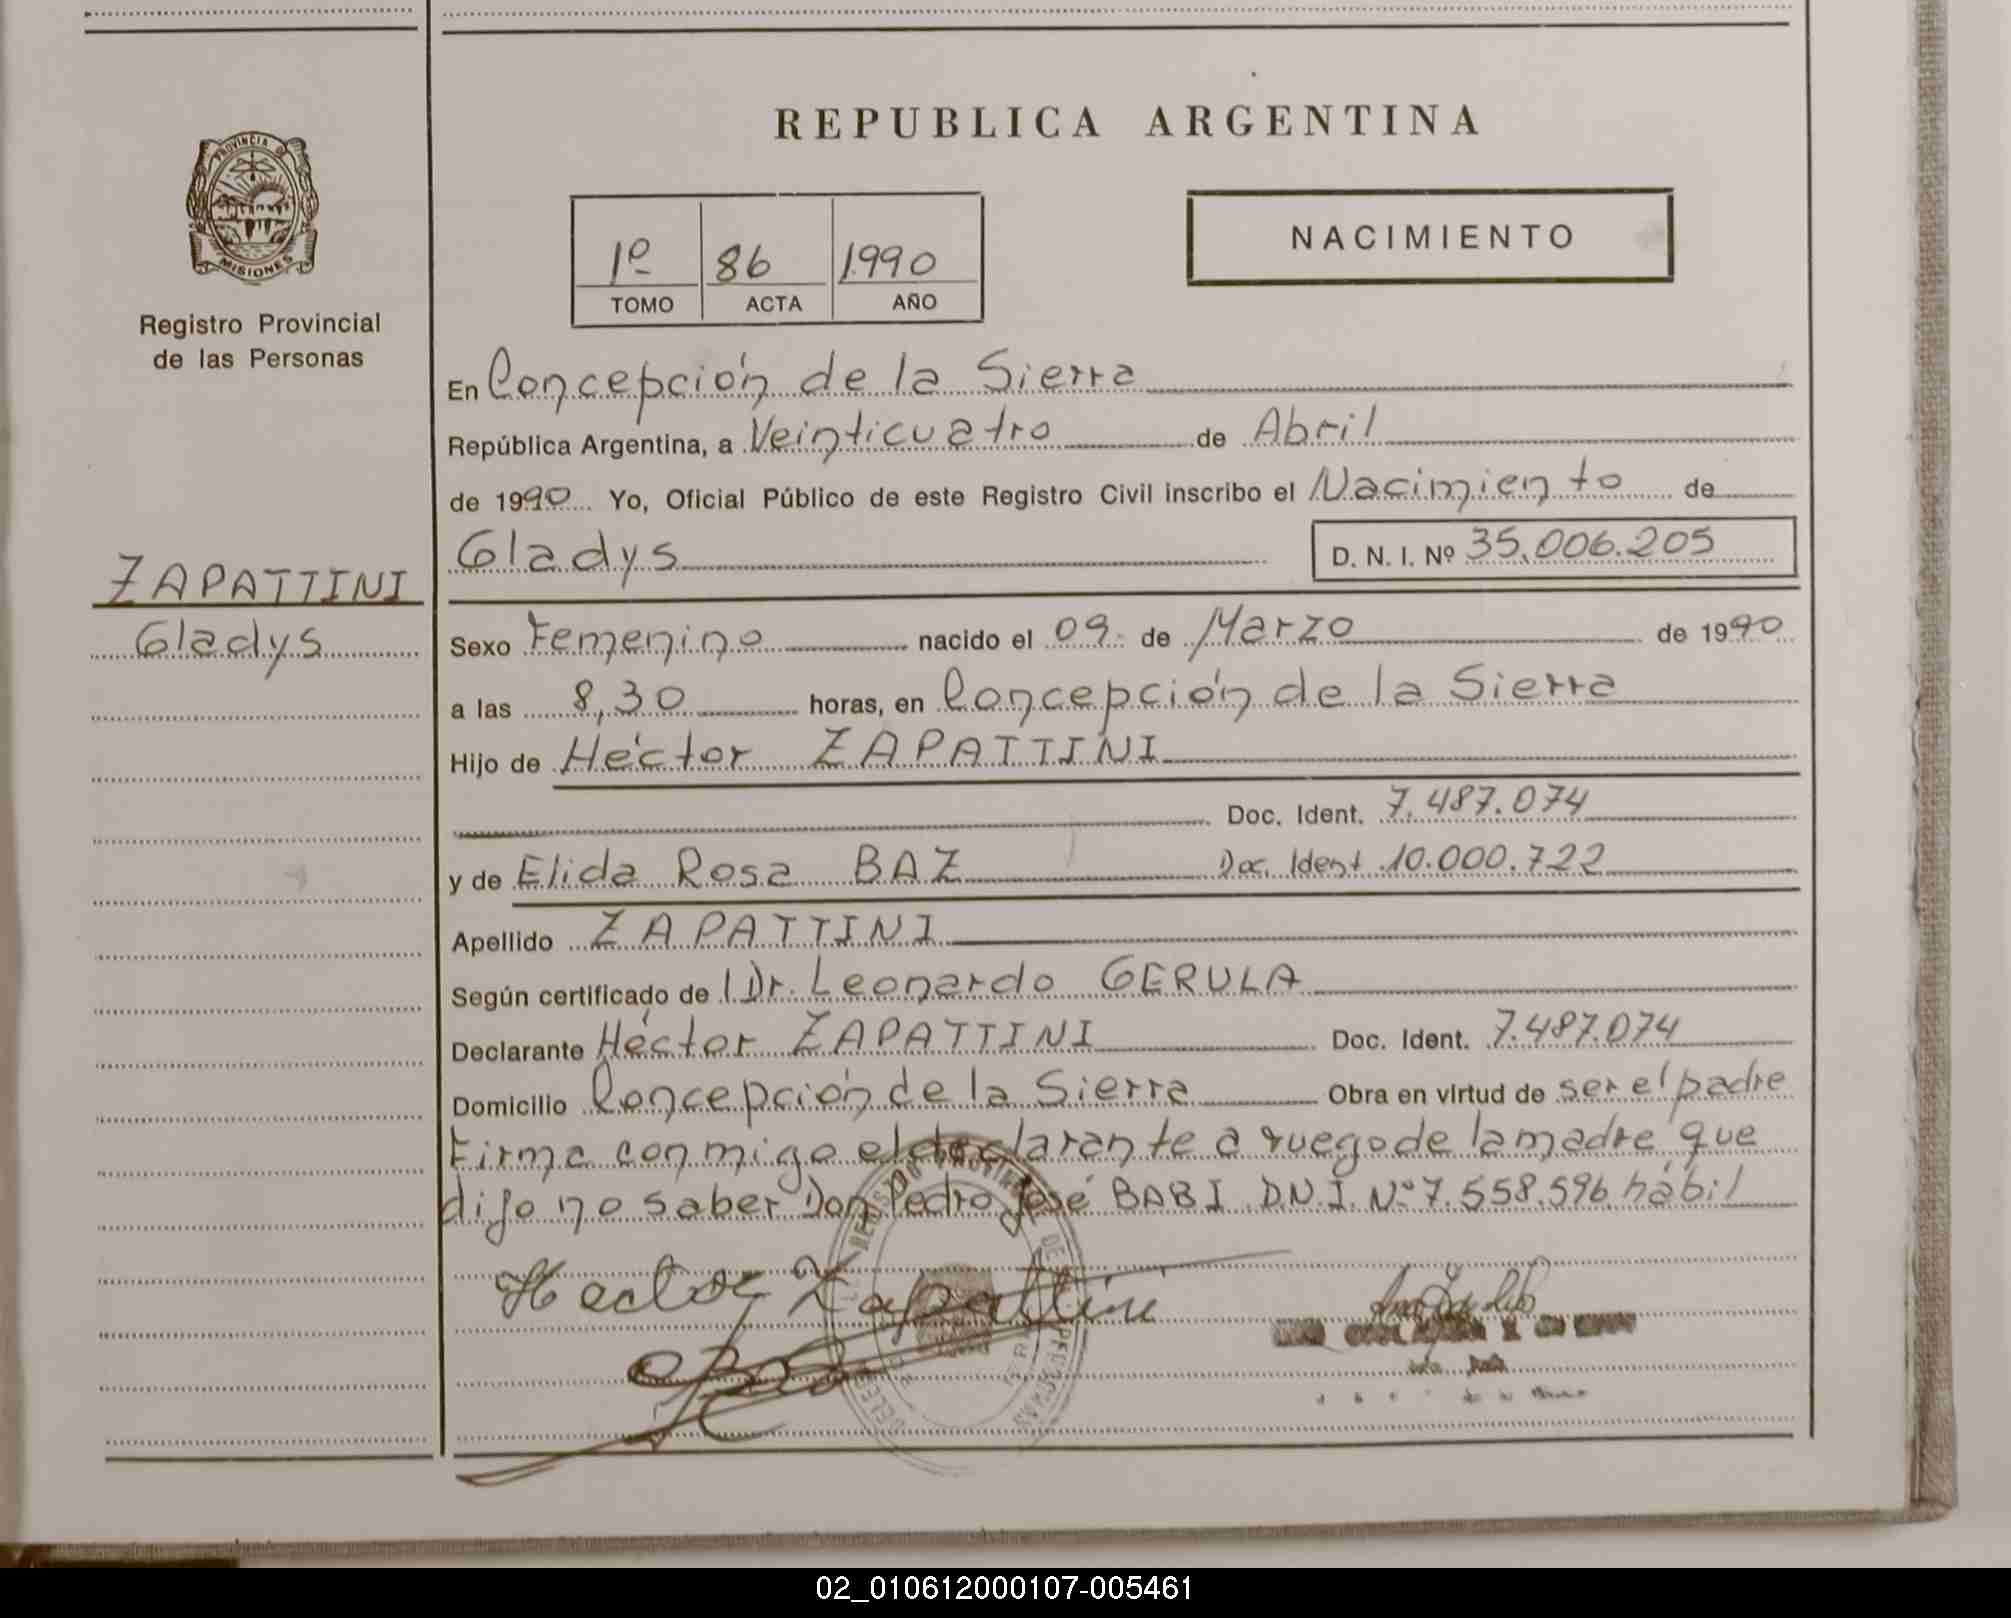 REPUBLICA ARGENTINA
PROVINCIA DE
MISIONES
Registro Provincial
de las Personas
1º 86 1990
TOMO ACTA AÑO
NACIMIENTO
En Concepción de la Sierra
República Argentina, a Veinticuatro de Abril
de 1990 Yo, Oficial Público de este Registro Civil inscribo el Nacimiento de
Gladys D. N. I. Nº 35.006.205
ZAPATTINI
Gladys
Sexo Femenino nacido el 09 de Marzo de 1990
a las 8,30 horas, en Concepción de la Sierra
Hijo de Héctor ZAPATTINI
Doc. Ident. 7.487.074
y de Elida Rosa BAZ Doc. Ident 10.000.722
Apellido ZAPATTINI
Según certificado de Dr. Leonardo GERULA
Declarante Héctor ZAPATTINI Doc. Ident. 7.487.074
Domicilio Concepción de la Sierra Obra en virtud de ser el padre
Firma conmigo el declarante a ruego de la madre que
dijo no saber Don Pedro José BABI D.N.I. Nº 7.558.596 hábil
Hector Zapattini
02_010612000107-005461